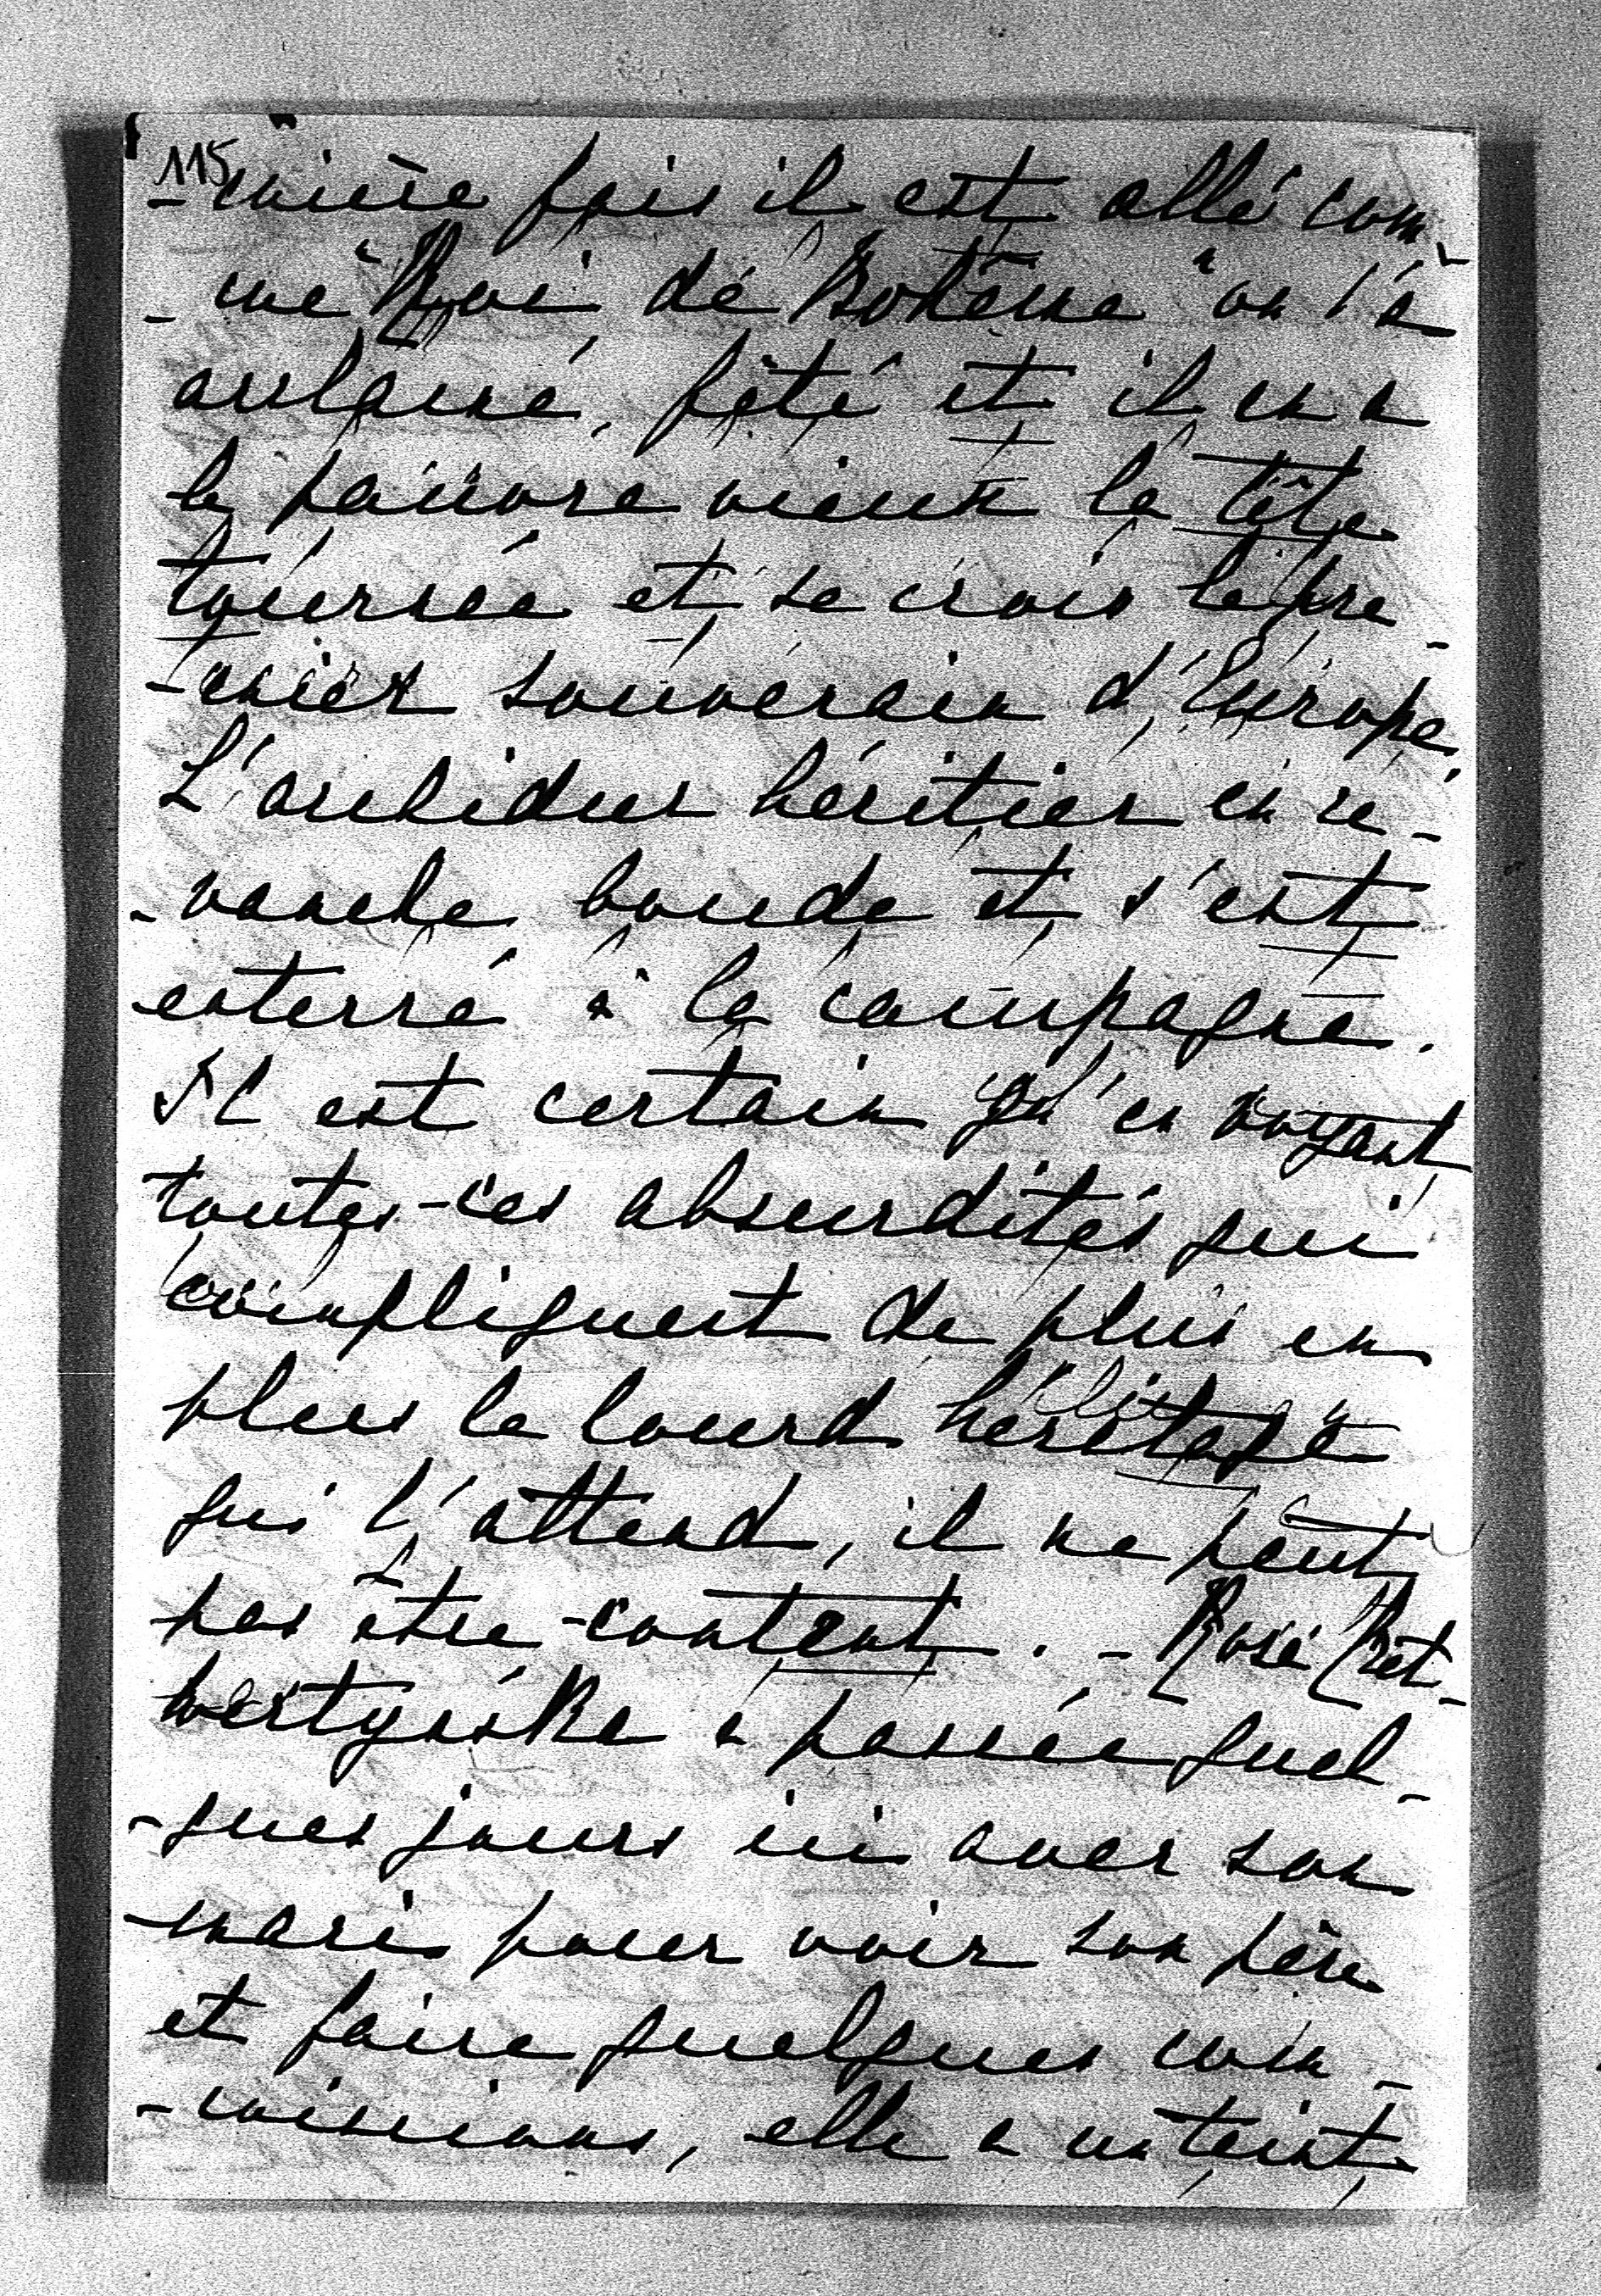 115
-mière fois il est allé com-
-me "Roi de Bohême" on l'a
acclamé, fêté et il en a
le pauvre vieux la tête
tournée et se crois le pre-
-mier souverain d'Europe.
L'archiduc héritier en re-
-vanche boude et s'est
enterré à la campagne.
Il est certain qu'en voyant
toutes ces absurdités qui
compliquent de plus en
plus le lourd héritage
qui l'attend, il ne peut
pas être content. - Rose Chet-
wertynska a passée quel-
-ques jours ici avec son
mari pour voir son père
et faire quelques com-
-missions, elle a un teint